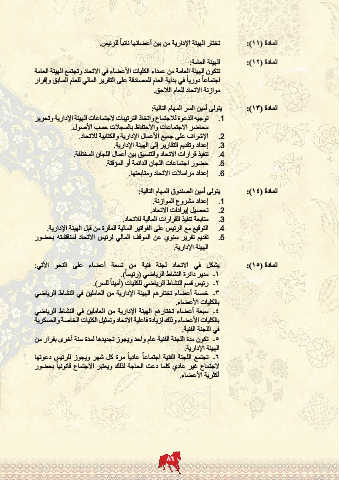 المادة (١١): تختار الهيئة الإدارية من بين أعضائها نائباً للرئيس.
المادة (١٢): الهيئة العامة:
تتكون الهيئة العامة من عمداء الكليات الأعضاء في الاتحاد وتجتمع الهيئة العامة
اجتماعاً دورياً في بداية العام للمصادقة على التقارير المالي للعام السابق وإقرار
موازنة الاتحاد للعام اللاحق.
المادة (١٣): يتولى أمين السر المهام التالية:
1. توجيه الدعوة للاجتماع واتخاذ الترتيبات لاجتماعات الهيئة الإدارية وتحرير
محاضر الاجتماعات والاحتفاظ بالسجلات حسب الأصول.
2. الإشراف على جميع الأعمال الإدارية والكتابية للاتحاد.
3. إعداد وتقديم التقارير إلى الهيئة الإدارية.
4. تنفيذ قرارات الاتحاد والتنسيق بين أعمال اللجان المختلفة.
5. حضور اجتماعات اللجان الدائمة أو المؤقتة.
6. إعداد مراسلات الاتحاد ومتابعتها.
المادة (١٤): يتولى أمين الصندوق المهام التالية:
1. إعداد مشروع الموازنة.
2. تحصيل إيرادات الاتحاد.
3. متابعة تنفيذ القرارات المالية للاتحاد.
4. التوقيع مع الرئيس على الفواتير المالية المقرة من قبل الهيئة الإدارية.
5. تقديم تقرير سنوي عن الموقف المالي لرئيس الاتحاد لمناقشته بحضور
الهيئة الإدارية.
المادة (١٥): يشكل في الاتحاد لجنة فنية من تسعة أعضاء على النحو الآتي:
١- مدير دائرة النشاط الرياضي (رئيساً).
٢- رئيس قسم النشاط الرياضي للكليات (أميناً للسر).
٣- خمسة أعضاء تختارهم الهيئة الإدارية من العاملين في النشاط الرياضي
بالكليات الأعضاء.
٤- سبعة أعضاء تختارهم الهيئة الإدارية من العاملين في النشاط الرياضي
بالكليات الأعضاء وذلك لزيادة فاعلية الاتحاد وتمثيل الكليات الخاصة والعسكرية
في اللجنة الفنية.
٥- تكون مدة اللجنة الفنية عام واحد ويجوز تجديدها لمدة سنة أخرى بقرار من
الهيئة الإدارية.
٦- تجتمع اللجنة الفنية اجتماعاً عادياً مرة كل شهر ويجوز للرئيس دعوتها
لاجتماع غير عادي كلما دعت الحاجة لذلك ويعتبر الاجتماع قانونياً بحضور
أكثرية الأعضاء.